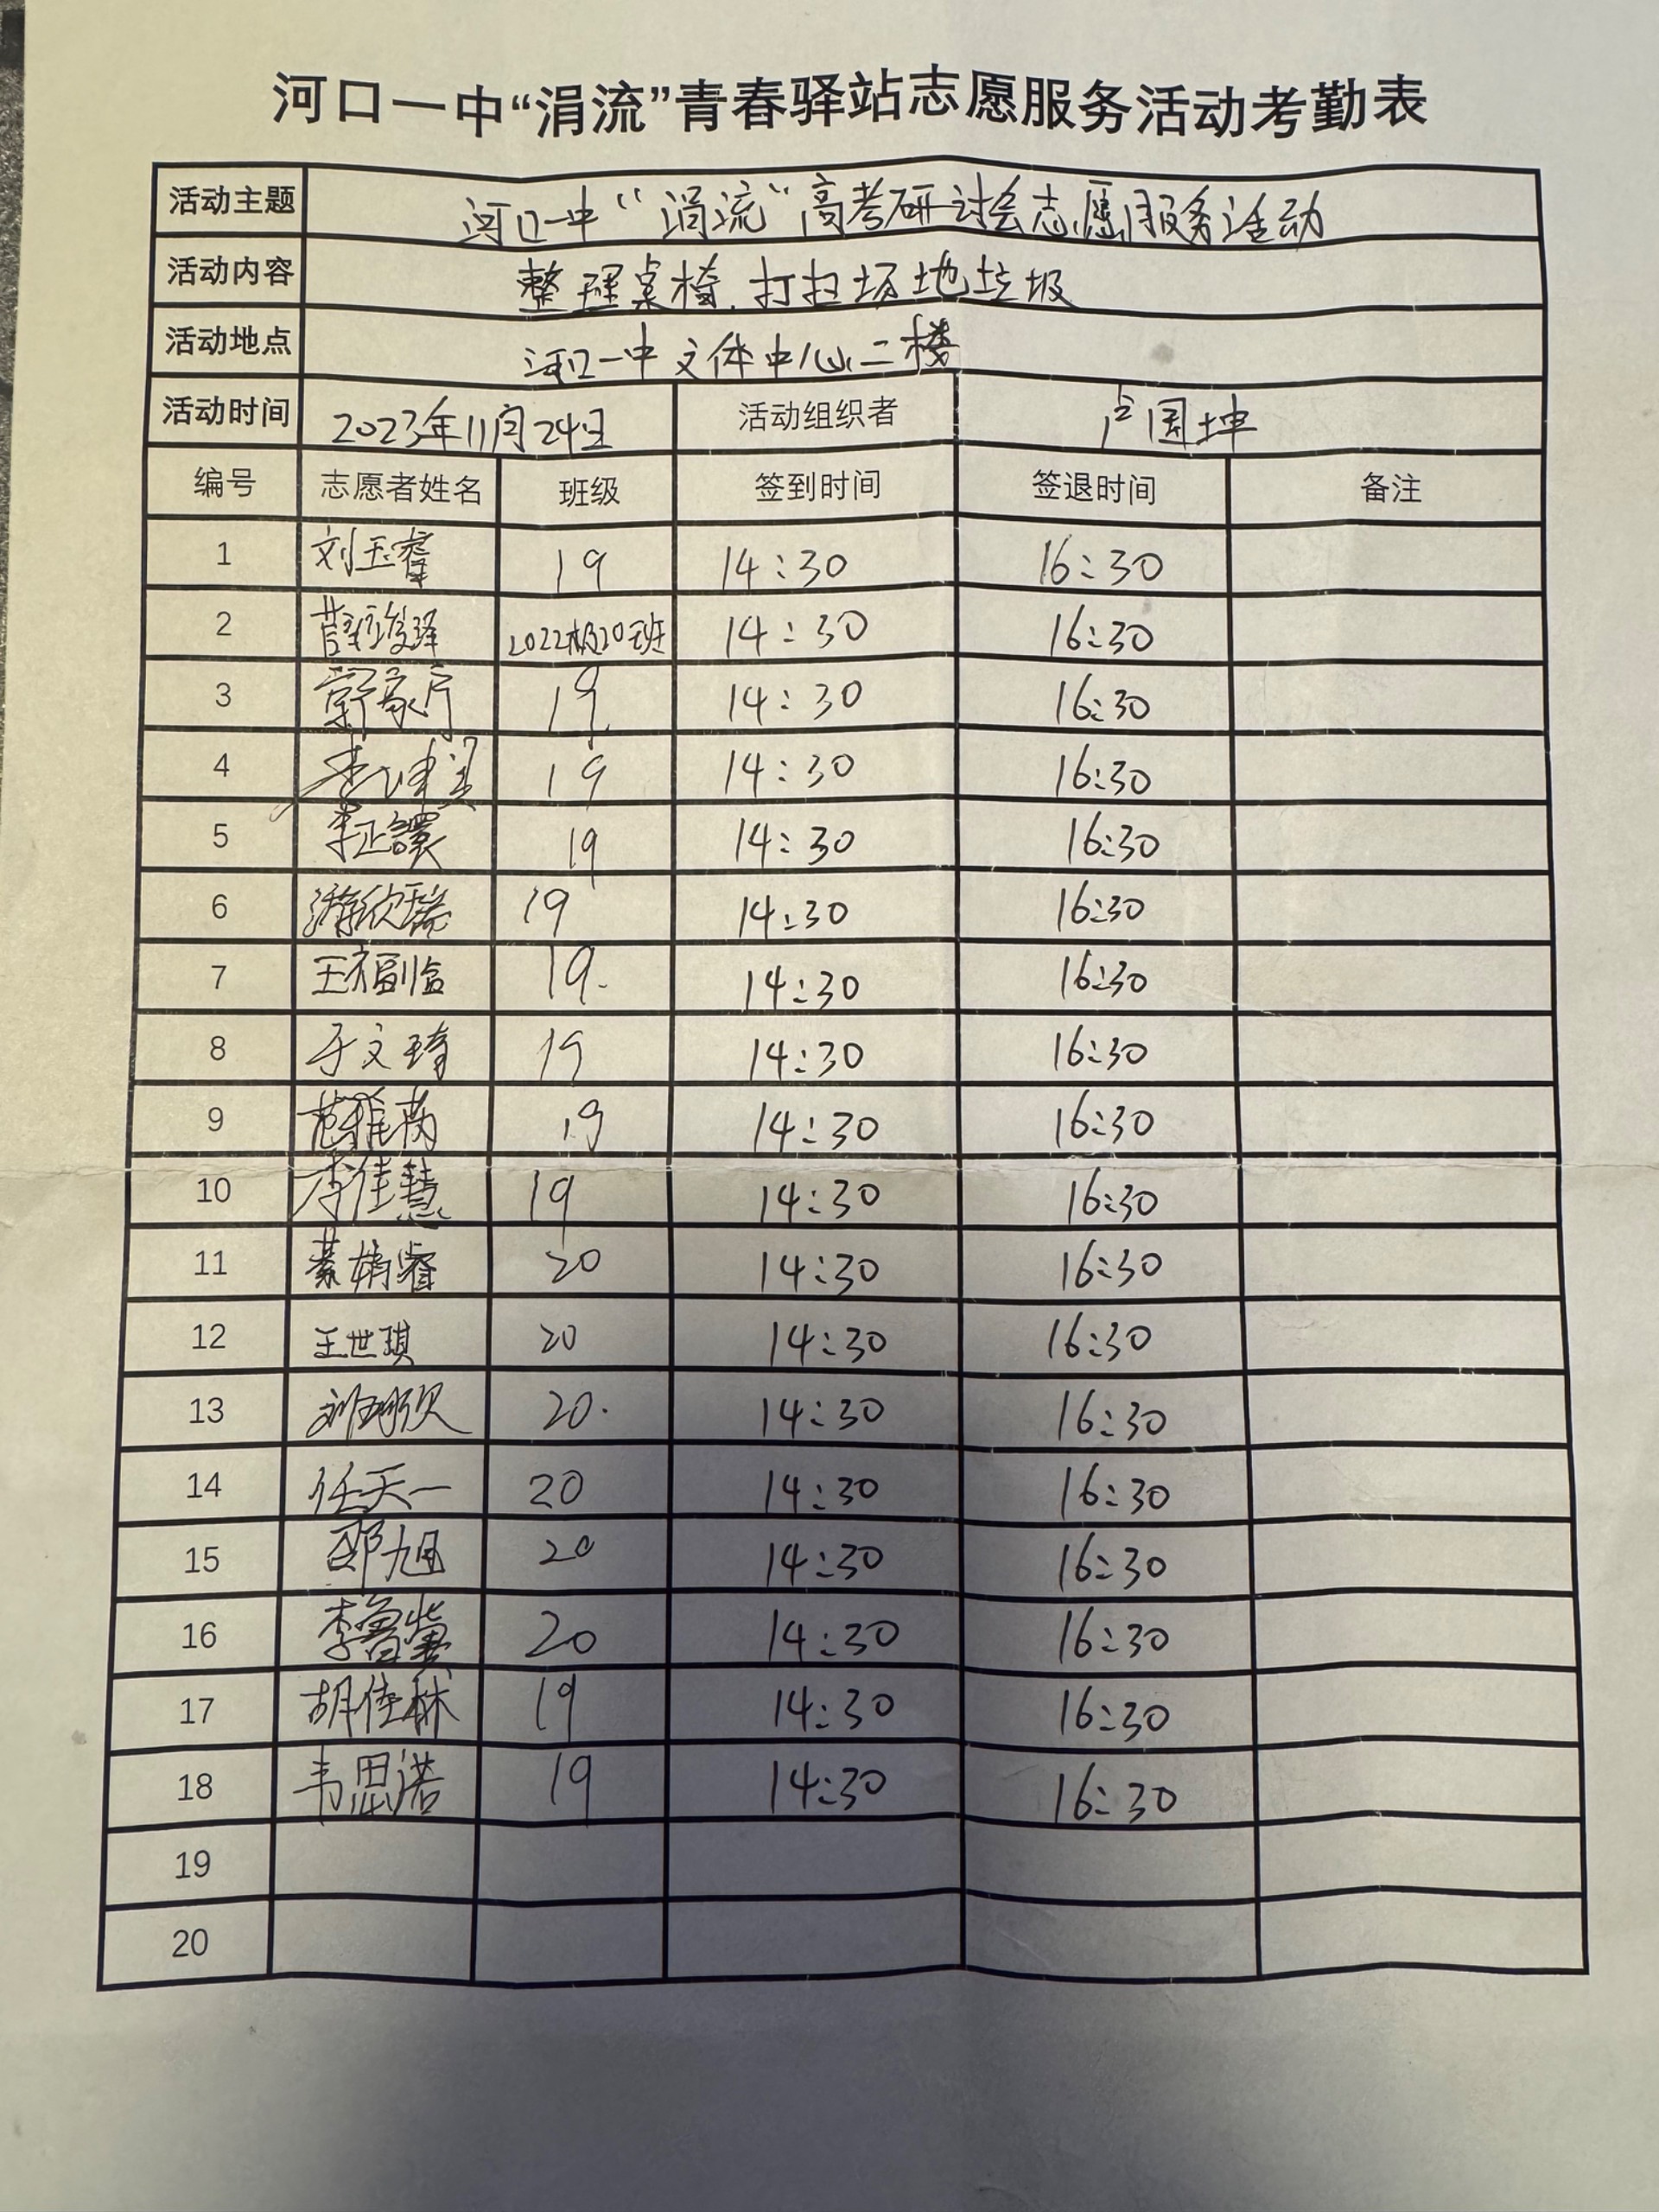 河口一中“涓流”青春驿站志愿服务活动考勤表
活动主题 河口一中“涓流”高考研讨会志愿服务活动
活动内容 整理桌椅、打扫场地垃圾
活动地点 河口一中文体中心二楼
活动时间 2023年11月24日 活动组织者 卢国坤
编号 志愿者姓名 班级 签到时间 签退时间 备注
1 刘玉睿 19 14:30 16:30
2 2022级20班 14:30 16:30
3 19 14:30 16:30
4 李坤 19 14:30 16:30
5 李正譞 19 14:30 16:30
6 游欣瑞 19 14:30 16:30
7 王福临 19. 14:30 16:30
8 于文琦 19 14:30 16:30
9 范雅茜 19 14:30 16:30
10 李佳慧 19 14:30 16:30
11 20 14:30 16:30
12 王世琪 20 14:30 16:30
13 20. 14:30 16:30
14 任天一 20 14:30 16:30
15 邵旭 20 14:30 16:30
16 李鲁 20 14:30 16:30
17 胡佳林 19 14:30 16:30
18 韦思诺 19 14:30 16:30
19
20